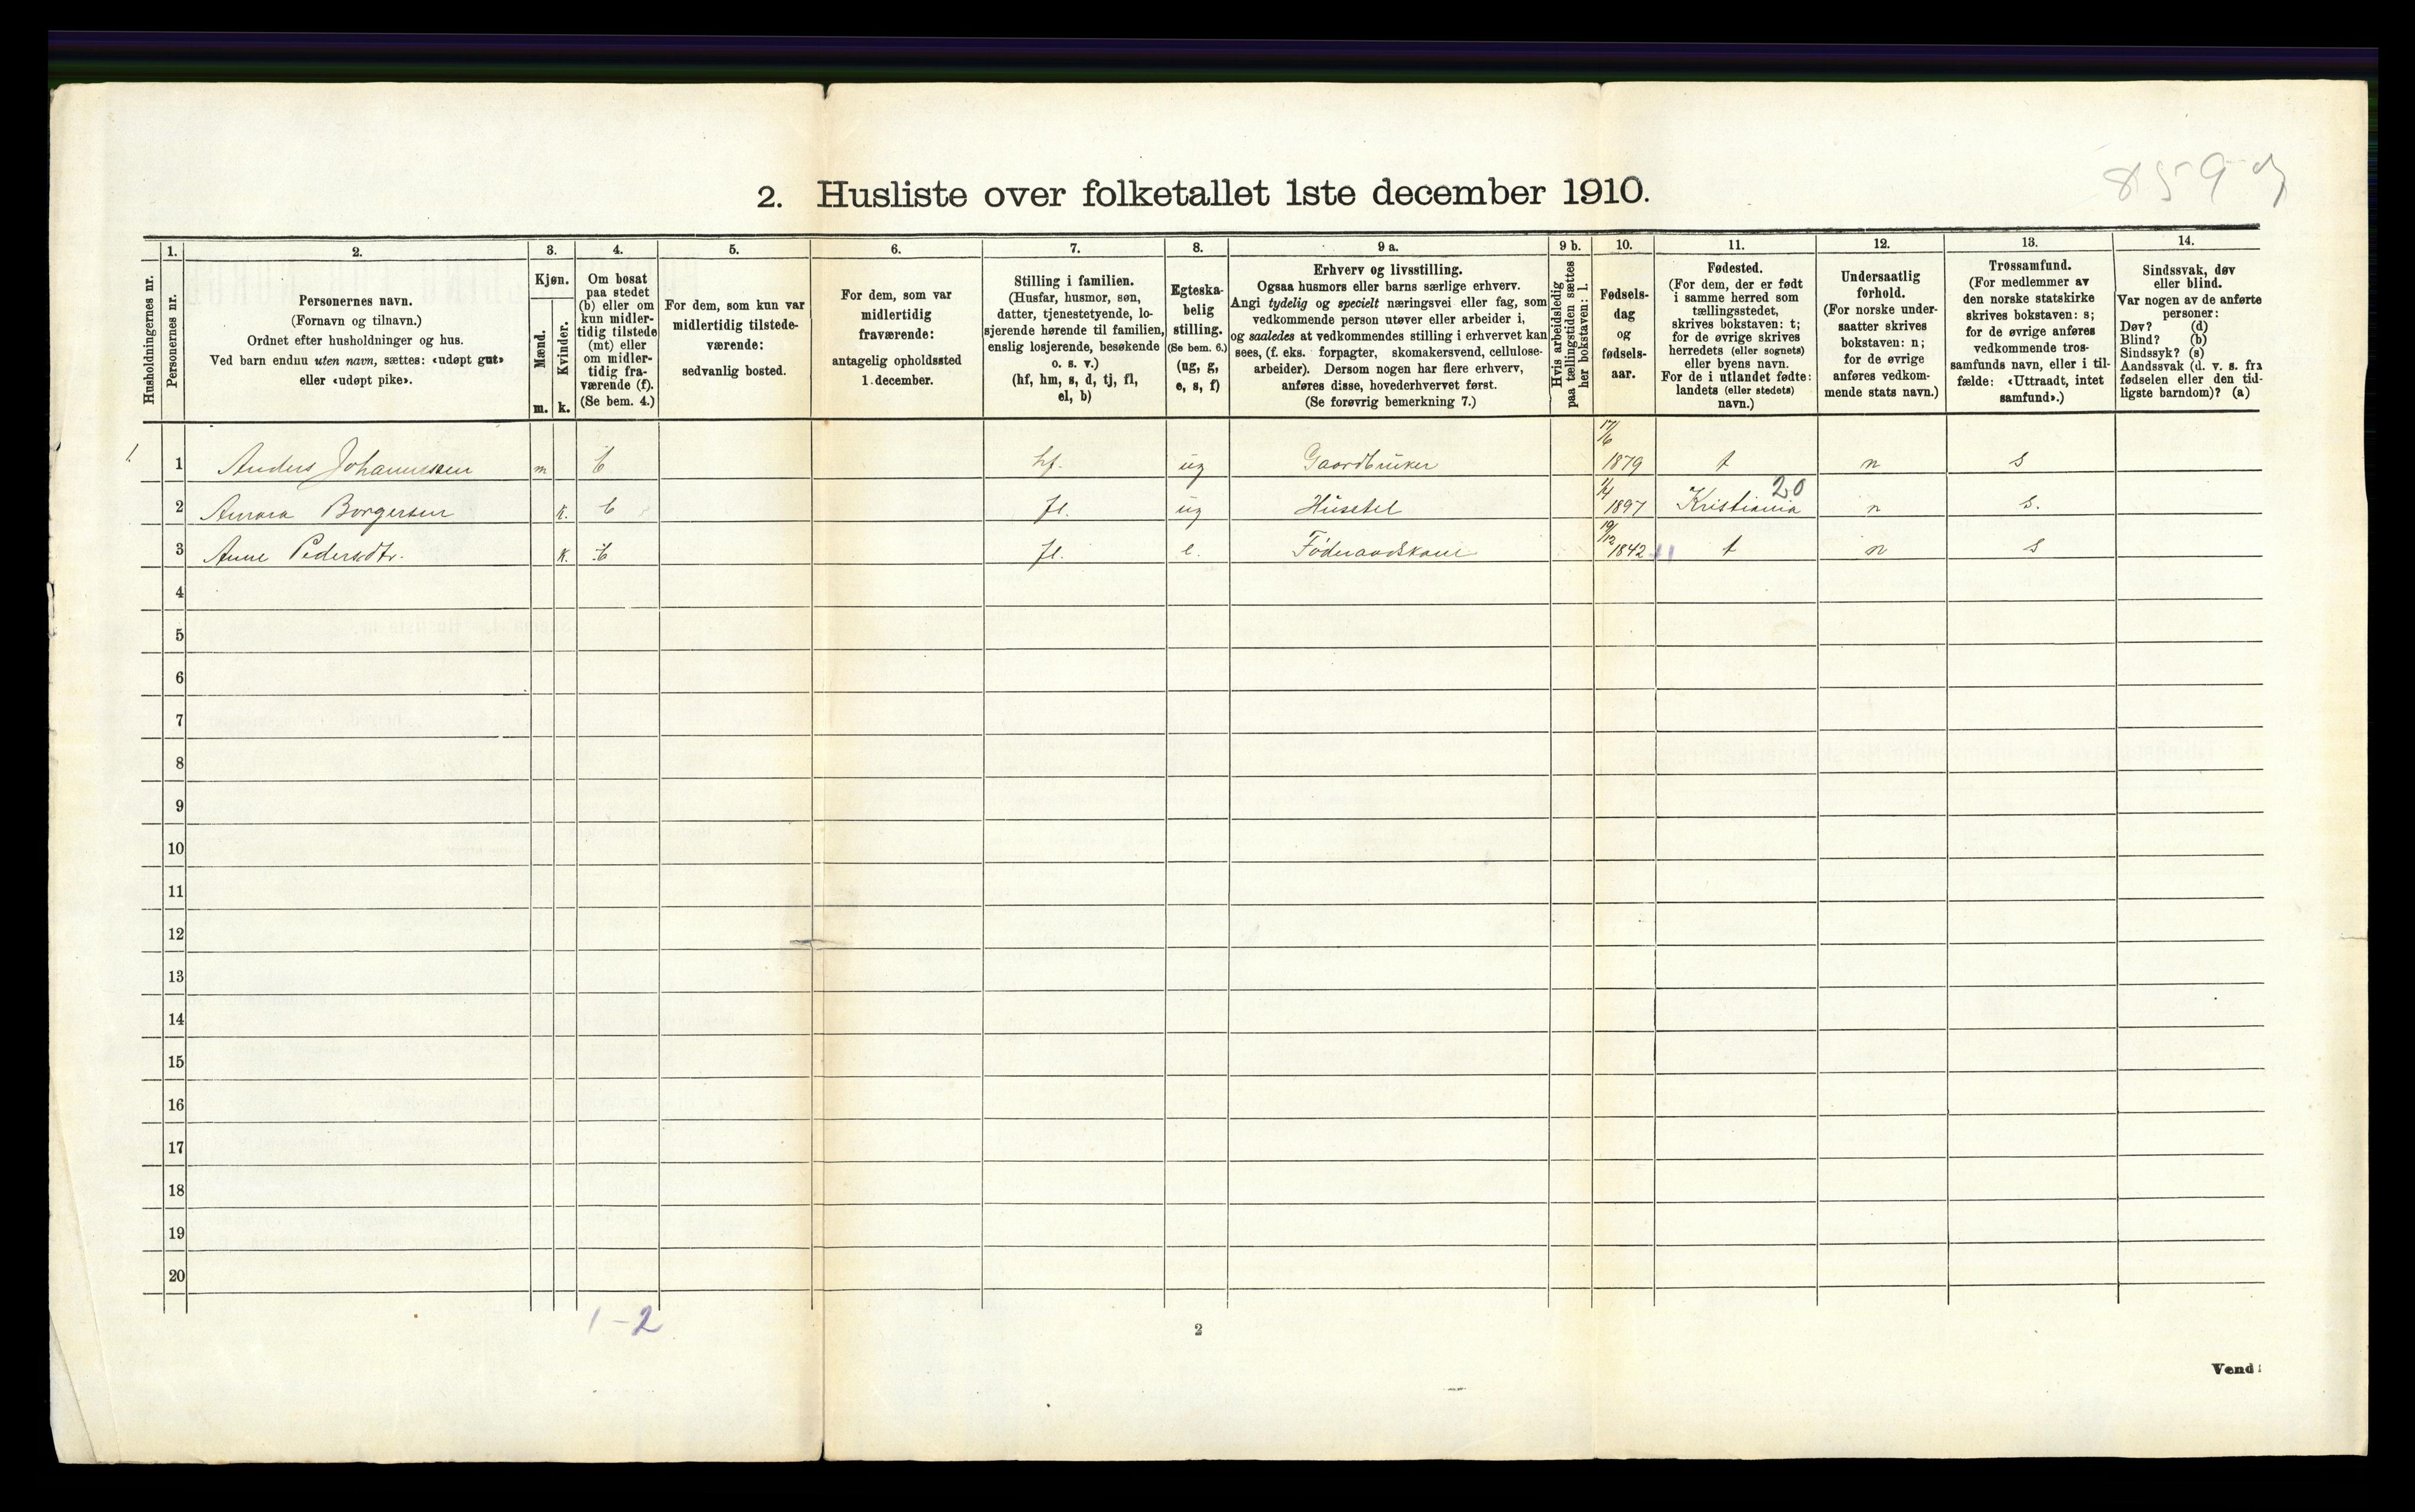 859
2. Husliste over folketallet 1ste december 1910.
Husholdningernes nr.
1. Personernes nr.
2. Personernes navn.
(Fornavn og tilnavn.)
Ordnet efter husholdninger og hus.
Ved barn endnu uten navn, sættes: «udøpt gut»
eller «udøpt pike».
3. Kjøn.
Mænd. m.
Kvinder. k.
4. Om bosat
paa stedet
(b) eller om
kun midler-
tidig tilstede
(mt) eller
om midler-
tidig fra-
værende (f).
(Se bem. 4.)
5. For dem, som kun var
midlertidig tilstede-
værende:
sedvanlig bosted.
6. For dem, som var
midlertidig
fraværende:
antagelig opholdssted
1. december.
7. Stilling i familien.
(Husfar, husmor, søn,
datter, tjenestetyende, lo-
sjerende hørende til familien,
enslig losjerende, besøkende
o. s. v.)
(hf, hm, s, d, tj, fl,
el, b)
8. Egteska-
belig
stilling.
(Se bem. 6.)
(ug, g,
e, s, f)
9 a. Erhverv og livsstilling.
Ogsaa husmors eller barns særlige erhverv.
Angi tydelig og specielt næringsvei eller fag, som
vedkommende person utøver eller arbeider i,
og saaledes at vedkommendes stilling i erhvervet kan
sees, (f. eks. forpagter, skomakersvend, cellulose-
arbeider). Dersom nogen har flere erhverv,
anføres disse, hovederhvervet først.
(Se forøvrig bemerkning 7.)
9 b. Hvis arbeidsledig
paa tællingstiden sættes
her bokstaven: l.
10. Fødsels-
dag
og
fødsels-
aar.
11. Fødested.
(For dem, der er født
i samme herred som
tællingsstedet,
skrives bokstaven: t;
for de øvrige skrives
herredets (eller sognets)
eller byens navn.
For de i utlandet fødte:
landets (eller stedets)
navn.)
12. Undersaatlig
forhold.
(For norske under-
saatter skrives
bokstaven: n;
for de øvrige
anføres vedkom-
mende stats navn.)
13. Trossamfund.
(For medlemmer av
den norske statskirke
skrives bokstaven: s;
for de øvrige anføres
vedkommende tros-
samfunds navn, eller i til-
fælde: «Uttraadt, intet
samfund».)
14. Sindssvak, døv
eller blind.
Var nogen av de anførte
personer:
Døv? (d)
Blind? (b)
Sindssyk? (s)
Aandssvak (d. v. s. fra
fødselen eller den tid-
ligste barndom)? (a)
1. 1 Anders Johannessen m b hf. ug Gaardbruker 17/6 1879 t n s
2 Borgersen k. b fl. ug Husstel 1897 Kristiania 20 n s.
3 Anne Pedersdtr. k. b fl. e. Føderaadskone 19/12 1842 t n s
4
5
6
7
8
9
10
11
12
13
14
15
16
17
18
19
20
1-2
2
Vend!